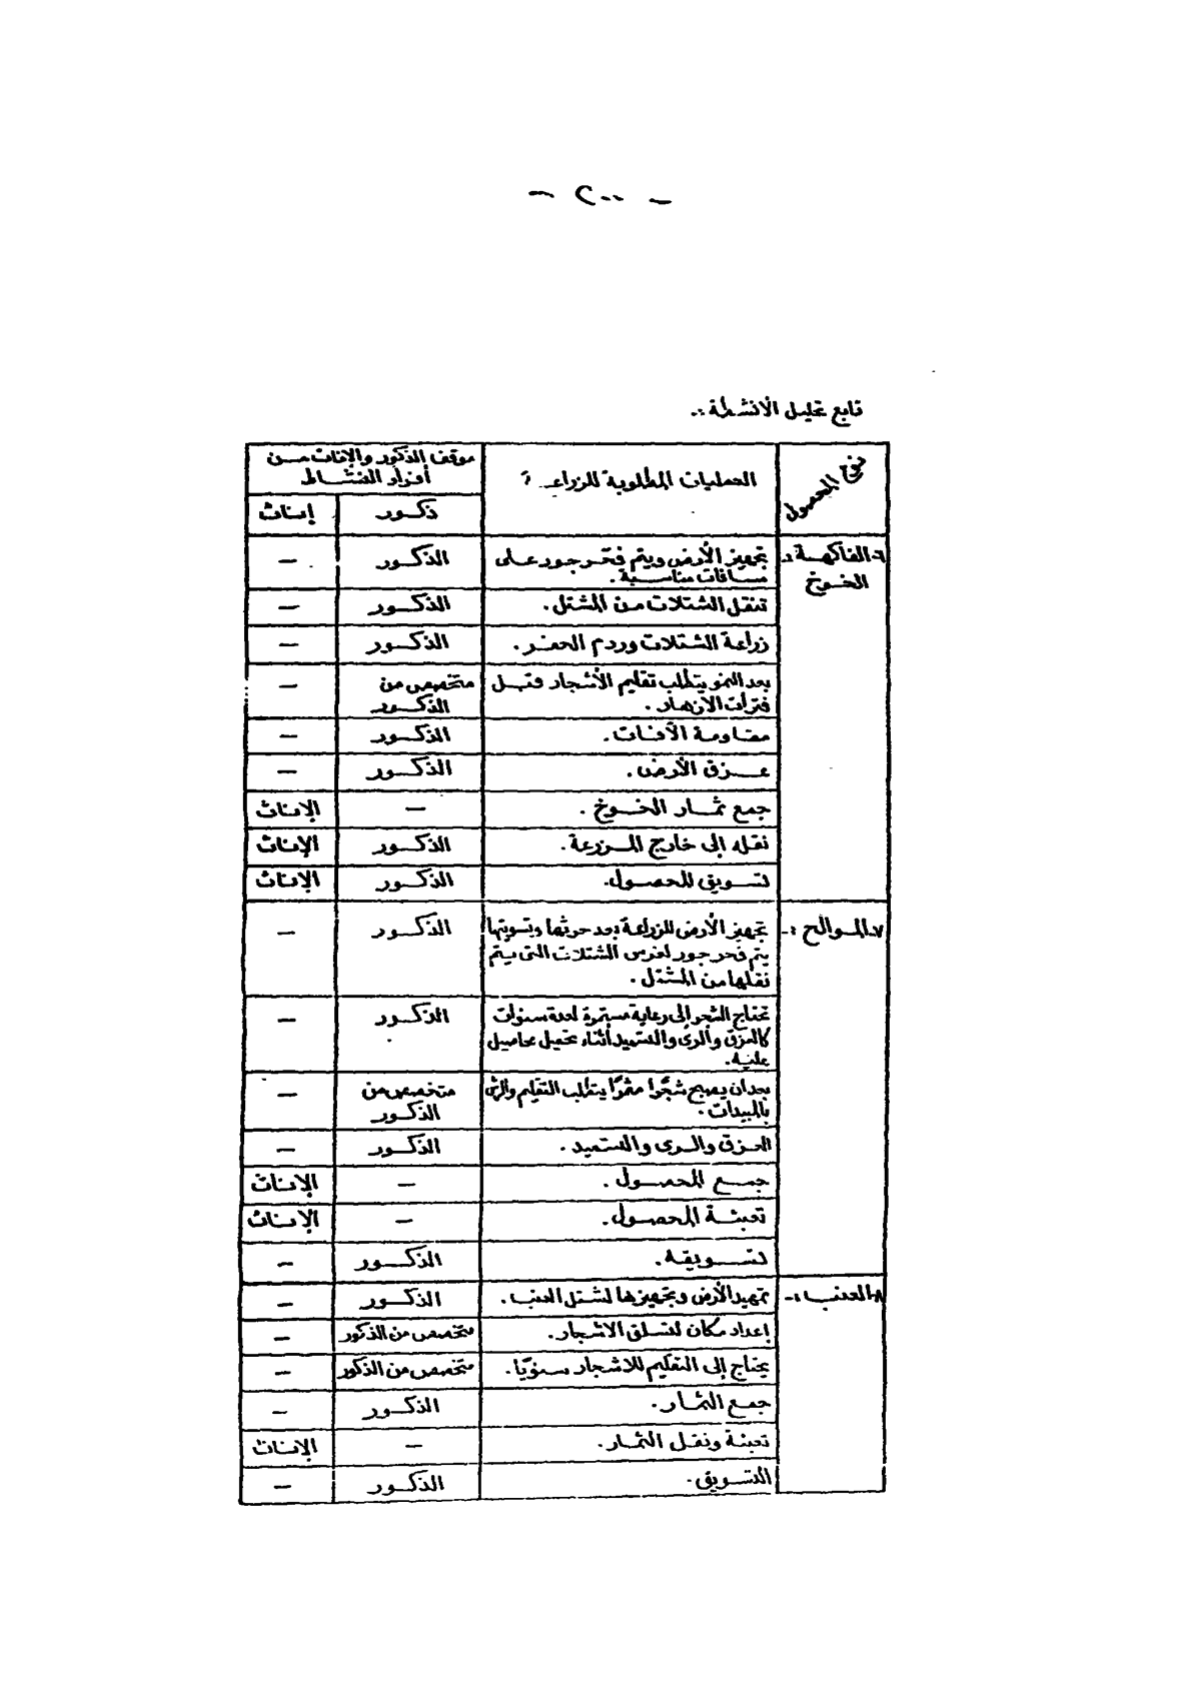 - ٢٠٠ -
تابع تحليل الأنشطة :-
نوع المحصول
العمليات المطلوبة للزراعة
موقف الذكور والإناث من
أفراد النشاط
ذكور
إناث
٦- الفاكهة :-
الخوخ
تجهيز الأرض ويتم فحر جور على
مسافات مناسبة .
الذكور
—
تنقل الشتلات من المشتل .
الذكور
—
زراعة الشتلات وردم الحفر .
الذكور
—
بعد النمو يتطلب تقليم الأشجار قبل
فترات الازهار .
متخصص من
الذكور
—
مقاومة الآفات .
الذكور
—
عزق الأرض .
الذكور
—
جمع ثمار الخوخ .
—
الإناث
نقله إلى خارج المزرعة .
الذكور
الإناث
تسويق المحصول .
الذكور
الإناث
٧- الموالح :-
تجهيز الأرض للزراعة بعد حرثها وتسويتها
يتم فحر جور لغرس الشتلات التى يتم
نقلها من المشتل .
الذكور
—
تحتاج الشجر إلى رعاية مستمرة لعدة سنوات
كالعزق والرى والتسميد أثناء تحميل محاصيل
عليه .
الذكور
—
بعد أن يصبح شجرًا مثمرًا يتطلب التقليم والرش
بالمبيدات .
متخصص من
الذكور
—
العزق والرى والتسميد .
الذكور
—
جمع المحصول .
—
الإناث
تعبئة المحصول .
—
الإناث
تسويقه .
الذكور
—
٨- العنب :-
تمهيد الأرض وتجهيزها لشتل العنب .
الذكور
—
إعداد مكان لتسلق الاشجار .
متخصص من الذكور
—
يحتاج إلى التقليم للاشجار سنويًا .
متخصص من الذكور
—
جمع الثمار .
الذكور
—
تعبئة ونقل الثمار .
—
الإناث
التسويق .
الذكور
—